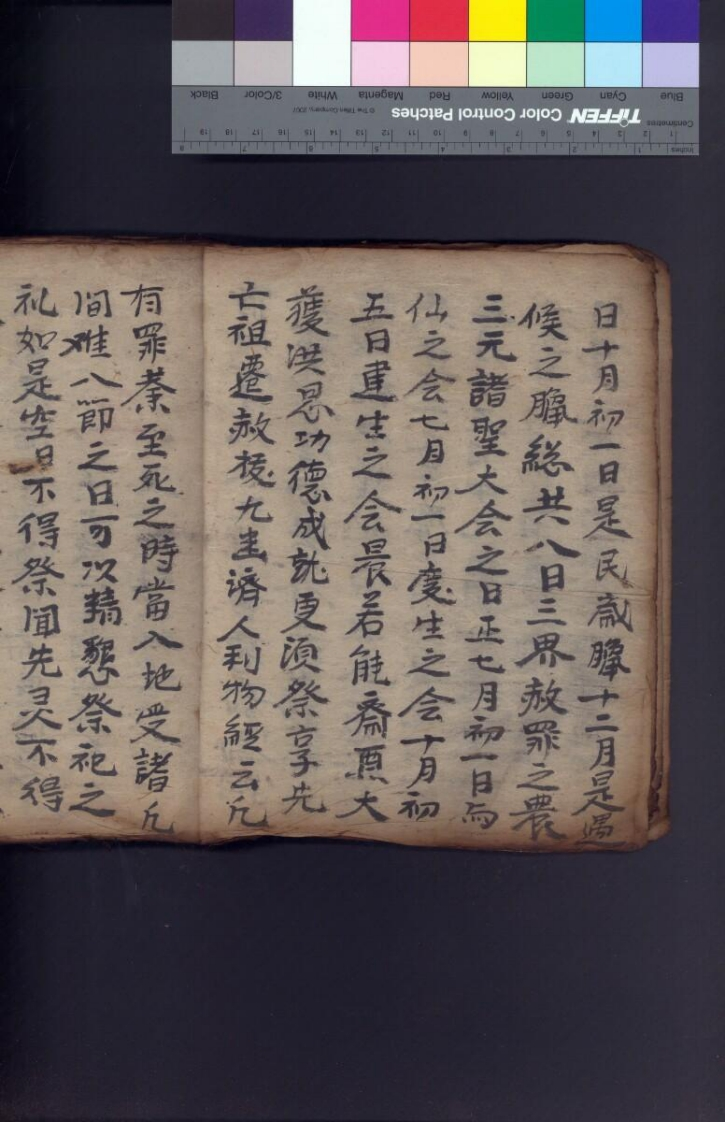 日十月初一日是民歳臈十二月是過
候之臈総共八日三界赦罪之農
三元諸聖大会之日正七月初一日為
仙之会七月初一日度生之会十月初
五日建生之会晨若能齋
大
獲洪恩功德成就更須祭享先
亡祖遷赦拔九玄濟人利物經云凡
有罪業至死之時當入地受諸凡
间难八節之日可以精懇祭祀之
礼如是空日不得祭闻先灵不得
Black 3/Color White Magenta Red Yellow Green Cyan Blue
TIFFEN Color Control Patches
© The Tiffen Company, 2007
Centimetres
Inches